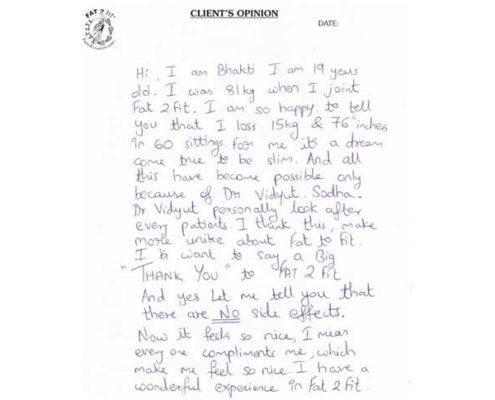 FAT 2 FIT
CLIENT'S OPINION
DATE:
Hi, I am Bhakti I am 19 years
old. I was 81kg when I joint
Fat 2 fit. I am so happy to tell
you that I loss 15kg & 76"inches
in 60 sittings. for me its a dream
come true to be slim. And all
this have become possible only
because of Dr Vidyut Sodha.
Dr Vidyut personally look after
every patients. I think this, make
more unike about fat to fit.
I want to say a Big
"THANK YOU" to FAT 2 FIT.
And yes Let me tell you that
there are NO side effects.
Now it feels so nice, I mean
every one compliments me, which
make me feel so nice. I have a
wonderful experience in Fat 2 Fit.